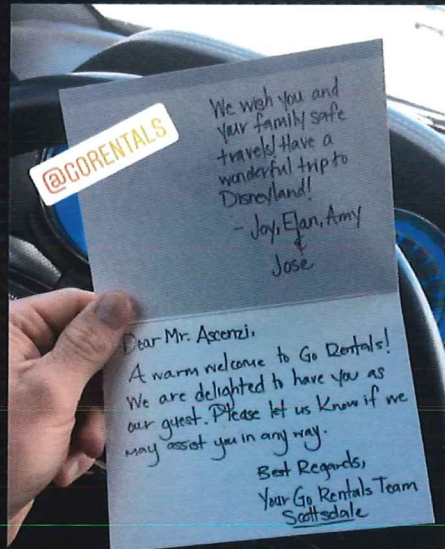 @GORENTALS
We wish you and
your family safe
travels! Have a
wonderful trip to
Disneyland!
- Joy, Elan, Amy
&
Jose
Dear Mr. Ascenzi,
A warm welcome to Go Rentals!
We are delighted to have you as
our guest. Please let us know if we
may assist you in any way.
Best Regards,
Your Go Rentals Team
Scottsdale